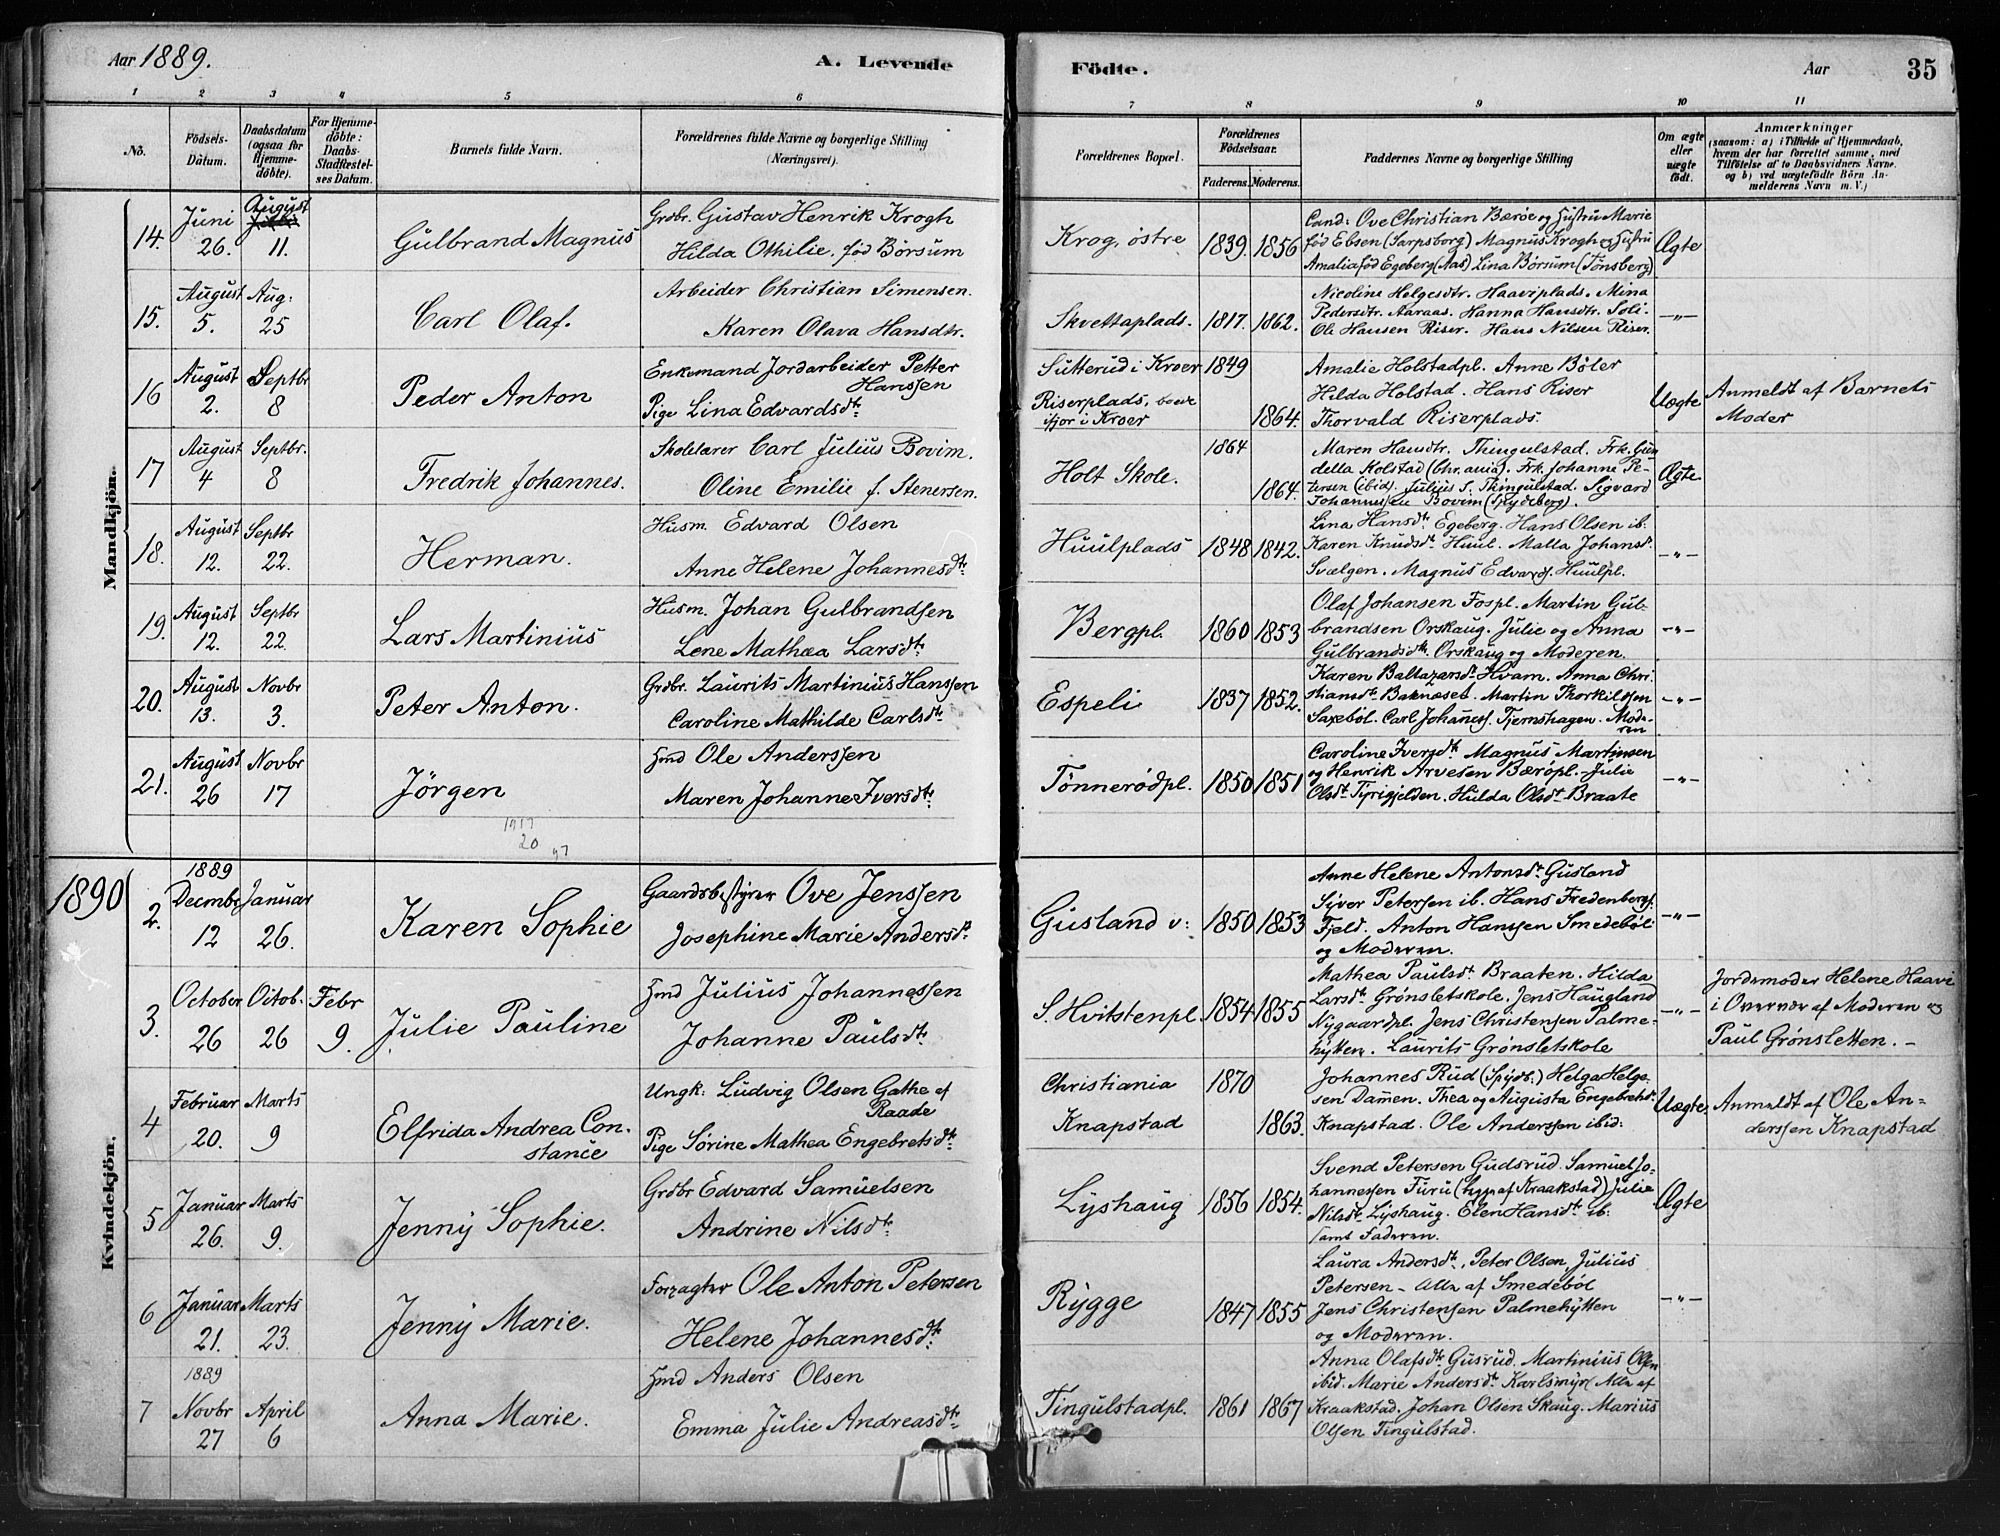 Aar 1889.
A. Levende
Födte.
Aar
35
1 2 3 4 5 6 7 8 9 10 11
No.
Födsels-
Datum.
Daabsdatum
(ogsaa for
Hjemme-
döbte).
For Hjemme-
döbte:
Daabs-
Stadfæstel-
ses Datum.
Barnets fulde Navn.
Forældrenes fulde Navne og borgerlige Stilling
(Næringsvei).
Forældrenes Bopæl.
Forældrenes
Födselsaar.
Faderens. Moderens.
Faddernes Navne og borgerlige Stilling
Om ægte
eller
uægte
födt.
Anmærkninger
(saasom: a) i Tilfælde af Hjemmedaab,
hvem der har forrettet samme, med
Tilföielse af to Daabsvidners Navne.
og b) ved uægtefödte Börn An-
melderens Navn m. V.)
Mandkjön.
14. Juni 26. August 11. Gulbrand Magnus
Grdbr. Gustav Henrik Krogh
Hilda Othilie. fød Børsum
Krog, østre 1839. 1856
Cand: Ove Christian Bærøe og Hustru Marie
fød Ebsen (Sarpsborg) Magnus Krogh og Hustru
Amalia fød Egeberg (Aas) Lina Børsum (Tønsberg)
Ægte
15. August 5. Aug: 25 Carl Olaf.
Arbeider Christian Simensen.
Karen Olava Hansdtr.
Skvettaplads. 1817. 1862.
Nicoline Helgesdtr. Haaviplads. Mina
Pedersdtr. Aaraas. Hanna Hansdtr. Soli-
Ole Hansen Riser. Hans Nilsen Riser.
-"-
16 August 2. Septbr 8 Peder Anton
Enkemand Jordarbeider Petter
Hanssen
Pige Lina Edvardsdtr.
Sutterud i Kroer 1849
Riserplads, boede
ifjor i Kroer 1864.
Amalie Holstadpl. Anne Bøler
Hilda Holstad. Hans Riser
Thorvald Riserplads.
Uægte
Anmeldt af Barnets
Moder
17 August 4 Septbr. 8 Fredrik Johannes.
Skolelærer Carl Julius Bovim.
Oline Emilie f. Stenersen.
Holt Skole. 1864 1864.
Maren Hansdtr. Thingulstad. Frk. Gun
della Kolstad (Chr.ania). Frk. Johanne Pe-
tersen (ibid). Julius S. Thingulstad. Sigvard
Johannes Bovim (Spydeberg).
Ægte
18. August 12. Septbr 22. Herman.
Husm Edvard Olsen
Anne Helene Johannesdtr.
Huulplads 1848 1842.
Lina Hansdtr. Egeberg. Hans Olsen ib:
Karen Knudsdtr. Huul. Malla Johansd.
Svælgen. Magnus Edvards. Huulpl.
-"-
19. August 12. Septbr 22. Lars Martinius
Husm. Johan Gulbrandsen
Lene Mathea Larsdtr.
Bergpl. 1860 1853
Olaf Johansen Fospl. Martin Gul-
brandsen Orskaug. Julie og Anna
Gulbrandsdtr. Orskaug og Moderen.
-"-
20. August 13. Novbr 3. Peter Anton.
Grdbr. Laurits Martinius Hanssen
Caroline Mathilde Carlsdtr.
Espeli 1837 1852.
Karen Baltazarsdtr. Hvam. Anna Chri-
stiansdtr. Baknæset. Martin Thorkildsen
Saxebøl. Carl Johaness. Tjernshagen. Mode-
ren
-"-
21. August 26 Novbr 17 Jörgen
Hmd Ole Anderssen
Maren Johanne Iversdtr.
Tønnerødpl. 1850 1851
Caroline Iversdtr. Magnus Martinsen
og Henrik Arvesen Bærøpl. Julie
Olsdtr. Tyrigjelden. Hulda Olsdtr. Braate
-"-
1917
20
97
1890
Kvindekjön.
1889
2. Decmbr 12 Januar 26. Karen Sophie
Gaardsbestyrer Ove Jenssen
Josephine Marie Andersdtr.
Gusland v: 1850 1853
Anne Helene Antonsdtr. Gusland
Syver Petersen ib. Hans Fredenbergs.
Fjeld. Anton Hanssen Smedebøl
og Moderen.
-"-
3. October 26 Oitob. 26 Febr 9. Julie Pauline
Hmd Julius Johannessen
Johanne Paulsdtr.
S. Hvitstenpl. 1854 1855
Mathea Paulsdtr. Braaten. Hilda
Larsdtr. Grønsletskole. Jens Haugland
Nygaardpl. Jens Christensen Palme-
hytten. Laurits Grønsletskole
-"-
Jordemoder Helene Haavi
i Overvær af Moderen og
Paul Grønsletten. -
4 Februar 20. Marts 9 Elfrida Andrea Con-
stance
Ungk: Ludvig Olsen Gathe af
Raade
Pige Sørine Mathea Engebretsdtr.
Christiania 1870
Knapstad 1863.
Johannes Rud (Spydb.) Helga Helge-
sen Damen. Thea og Augusta Engebretsdtr.
Knapstad. Ole Anderssen ibid:
Uægte
Anmeldt af Ole An-
derssen Knapstad
5 Januar 26. Marts 9. Jenny Sophie.
Grdbr Edvard Samuelsen
Andrine Nilsdtr.
Lyshaug 1856 1854.
Svend Petersen Gudsrud. Samuel Jo-
hannessen Furu (begge af Kraakstad) Julie
Nilsdtr. Lyshaug. Elen Hansdtr. ib.
samt Faderen.
Ægte
6 Januar 21. Marts 23. Jenny Marie.
Forpagter Ole Anton Petersen
Helene Johannesdtr.
Rygge 1847 1855
Laura Andersdtr., Peter Olsen, Julius
Petersen - Alle af Smedebøl
Jens Christensen Palmehytten
og Moderen.
-"-
1889
7 Novbr 27 April 6 Anna Marie.
Hmd Anders Olsen
Emma Julie Andreasdtr.
Tingulstadpl. 1861 1867
Anna Olafsdtr. Gusrud. Martinius Olsen
ibid. Marie Andersdtr. Karlsmyr Alle af
Kraakstad. Johan Olsen Skaug. Marius
Olsen Tingulstad.